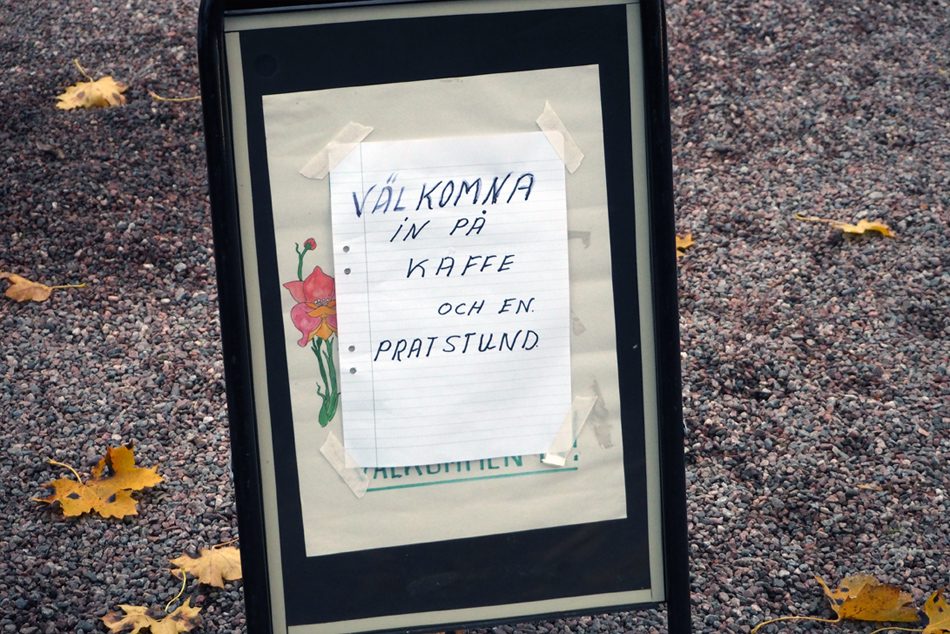 VÄLKOMNA
IN PÅ
KAFFE
OCH EN
PRATSTUND
VÄLKOMMEN